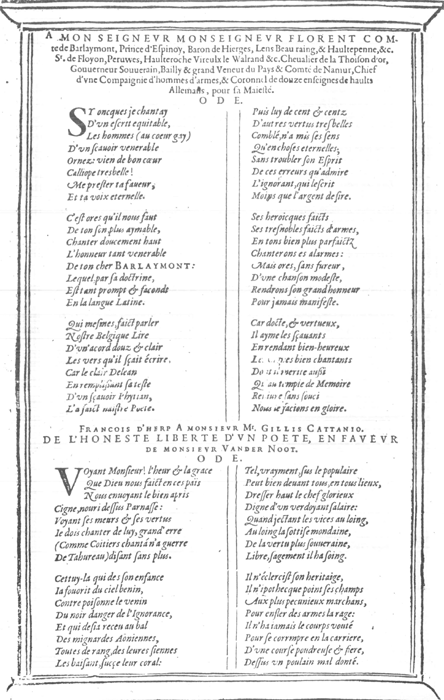 A MONSEIGNEVR MONSEIGNEVR FLORENT COM-
te de Barlaymont, Prince d'Espinoy, Baron de Hierges, Lens Beauraing, & Haultepenne, &c.
Sr. de Floyon, Peruwes, Haulteroche Vireulx le Walrand &c. Cheualier de la Thoison d'or,
Gouuerneur Souuerain, Bailly & grand Veneur du Pays & Comté de Namur, Chief
d'vne Compaignie d'hommes d'armes, & Coronnel de douze enseignes de haults
Allemans, pour sa Maiesté.
O D E.
SY oncques ie chantay
D'vn esprit equitable,
Les hommes (au coeur gay)
D'vn sçauoir venerable
Ornez: vien de bon cœur
Calliope tresbelle!
Me prester ta faueur,
Et ta voix eternelle.
C'est ores qu'il nous faut
De ton son, plus aymable,
Chanter doucement haut
L'honneur tant venerable
De ton cher BARLAYMONT:
Lequel par sa doctrine,
Est tant promps & facond
En la langue Latine.
Qui mesmes, faict parler
Nostre Belgique Lire
D'vn acord doux & clair
Les vers qu'il sçait écrire.
Car le clair Delean
En remplissant sa teste
D'vn sçauoir Phytian,
L'a faict naistre Poete.
Puis luy de cent & centz
D'autres vertus tresbelles
Comblé, n'a mis ses sens
Qu'en choses eternelles,
Sans troubler son Esprit
De ces erreurs qu'admire
L'ignorant, qui les crit
Moins que l'argent desire.
Ses heroicques faicts
Ses tresnobles faicts d'armes,
En tons bien plus parfaictz
Chanterons es alarmes:
Mais ores, sans fureur,
D'vne chanson modeste,
Rendrons son grand honneur
Pour jamais manifeste.
Car docte, & vertueux,
Il ayme les sçauants
En rendant bien-heureux
bien chantants
aussi
temple de Memoire
sans souci
Nous le facions en gloire.
FRANCOIS D'HERP A MONSIEUR Mr. GILLIS CATTANIO.
DE L'HONESTE LIBERTE D'VN POETE, EN FAVEVR
DE MONSIEVR VANDER NOOT.
O D E.
VOyant Monsieur! l'heur & la grace
Que Dieu nous faict en ces païs
Nous enuoyant le bien apris
Cigne, nourri dessus Parnasse:
Voyant ses meurs & ses vertus
Ie dois chanter de luy, grand'erre
(Comme Coitiers chanta n'a guerre
De Tahureau) disant sans plus.
Cettuy-la qui des son enfance
Ia fouorit du ciel benin,
Contre poisonne le venin
Du noir danger de l'Ignorance,
Et qui desia receu au bal
Des mignardes Aoniennes,
Toutes de rang, des leures siennes
Les baisant, succe leur coral:
Tel, vrayment, sus le populaire
Peut bien deuant tous, en tous lieux,
Dresser haut le chef glorieux
Digne d'vn verdoyant salaire:
Quand jectant les vices au loing,
Au loing la sottise mondaine,
De la vertu plus souueraine,
Libre, sagement il ha soing.
Il n'éclercist son heritaige,
Il n'ipothecque point ses champs
Aux plus pecunieux marchans,
Pour enfler des armes la rage:
Il n'ha iamais le courps vouté
Pour se corrompre en la carriere,
D'vne course poudreuse & fiere,
Dessus vn poulain mal donté.